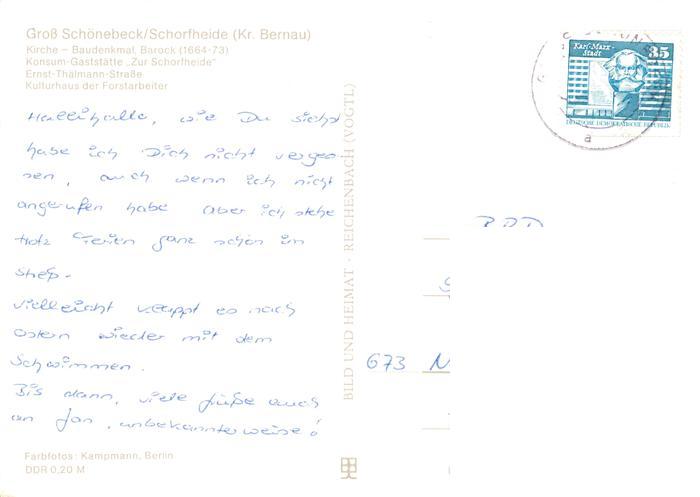 Groß Schönebeck/Schorfheide (Kr. Bernau)
Kirche – Baudenkmal, Barock (1664-73)
Konsum-Gaststätte „Zur Schorfheide“
Ernst-Thälmann-Straße
Kulturhaus der Forstarbeiter
Hallihallo, wie Du siehst
habe ich Dich nicht verges
sen, auch wenn ich nicht
angerufen habe aber ich stehe
trotz Ferien ganz schön im
Streß.
Vielleicht klappt es nach
Ostern wieder mit dem
Schwimmen.
Bis dann, viele Grüße auch
an Jan, unbekannterweise!
Farbfotos: Kampmann, Berlin
DDR 0,20 M
BILD UND HEIMAT · REICHENBACH (VOGTL)
Karl-Marx-
Stadt
35
DEUTSCHE DEMOKRATISCHE REPUBLIK
a
BRD
673 N